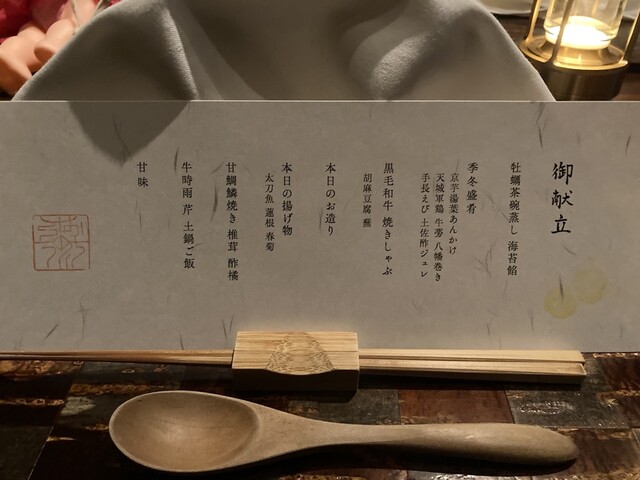 御献立
牡蠣茶碗蒸し 海苔餡
季冬盛肴
京芋湯葉あんかけ
天城軍鶏 牛蒡 八幡巻き
手長えび 土佐酢ジュレ
黒毛和牛 焼きしゃぶ
胡麻豆腐 蕪
本日のお造り
本日の揚げ物
太刀魚 蓮根 春菊
甘鯛鱗焼き 椎茸 酢橘
牛時雨 芹 土鍋ご飯
甘味